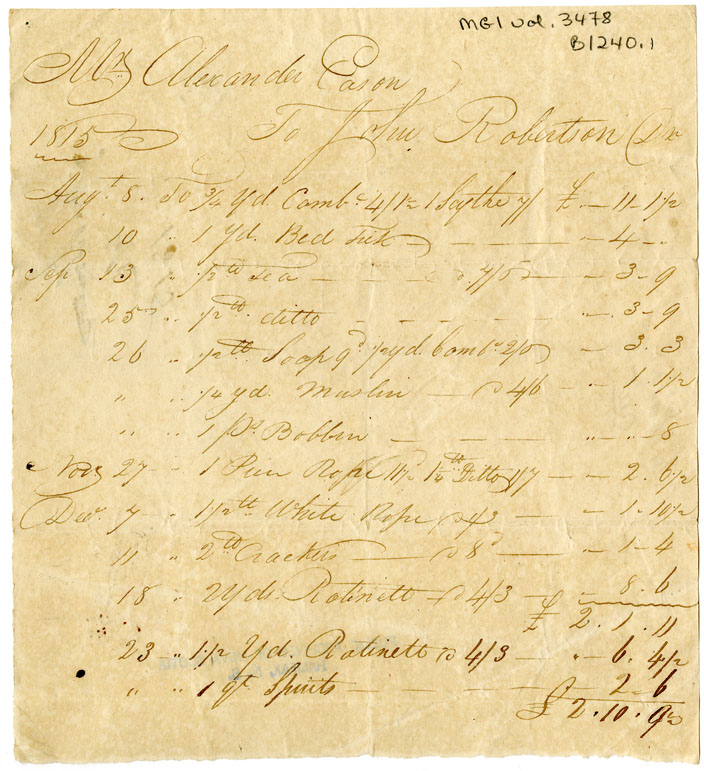 MG1 vol. 3478
B1240.1
Mr Alexander Eason
1815 To John Robertson Dr
Augt 8. To 3/4 Yd. Camb.c 4/1 1/2 1 Scythe 7/ £ " — 11 — 1 1/2
10 " 1 Yd. Bed Tick — — — " — 4 — "
Sep 13 " 1/2 lb Tea — — @ 7/6 — " — 3 — 9
25 " 1/2 lb ditto — — — — " — 3 — 9
26 " 1/2 lb Soap 9d 1/2 yd. Camb.c 2/6 " — 3 . 3
" " 1/4 yd. Muslin — @ 4/6 " — 1 . 1 1/2
" " 1 ps Bobbin — — — " — " — 8
Nov 27 " 1 Rope 11 1/2 1 1/4 lb Ditto 1/7 — " 2 . 6 1/2
Decr. 7 " 1 1/2 lb White Rope @ 1/3 — " — 1 — 10 1/2
11 " 2 lb Crackers — @ 8d — " — 1 — 4
18 " 2 Yds. Ratinett @ 4/3 — " 8 . 6
£ 2 . 1 . 11
23 " 1 1/2 Yd. Ratinett @ 4/3 — " — 6 . 4 1/2
" " 1 qt Spirits — — — — 2 — 6
£ 2 . 10 . 9 1/2